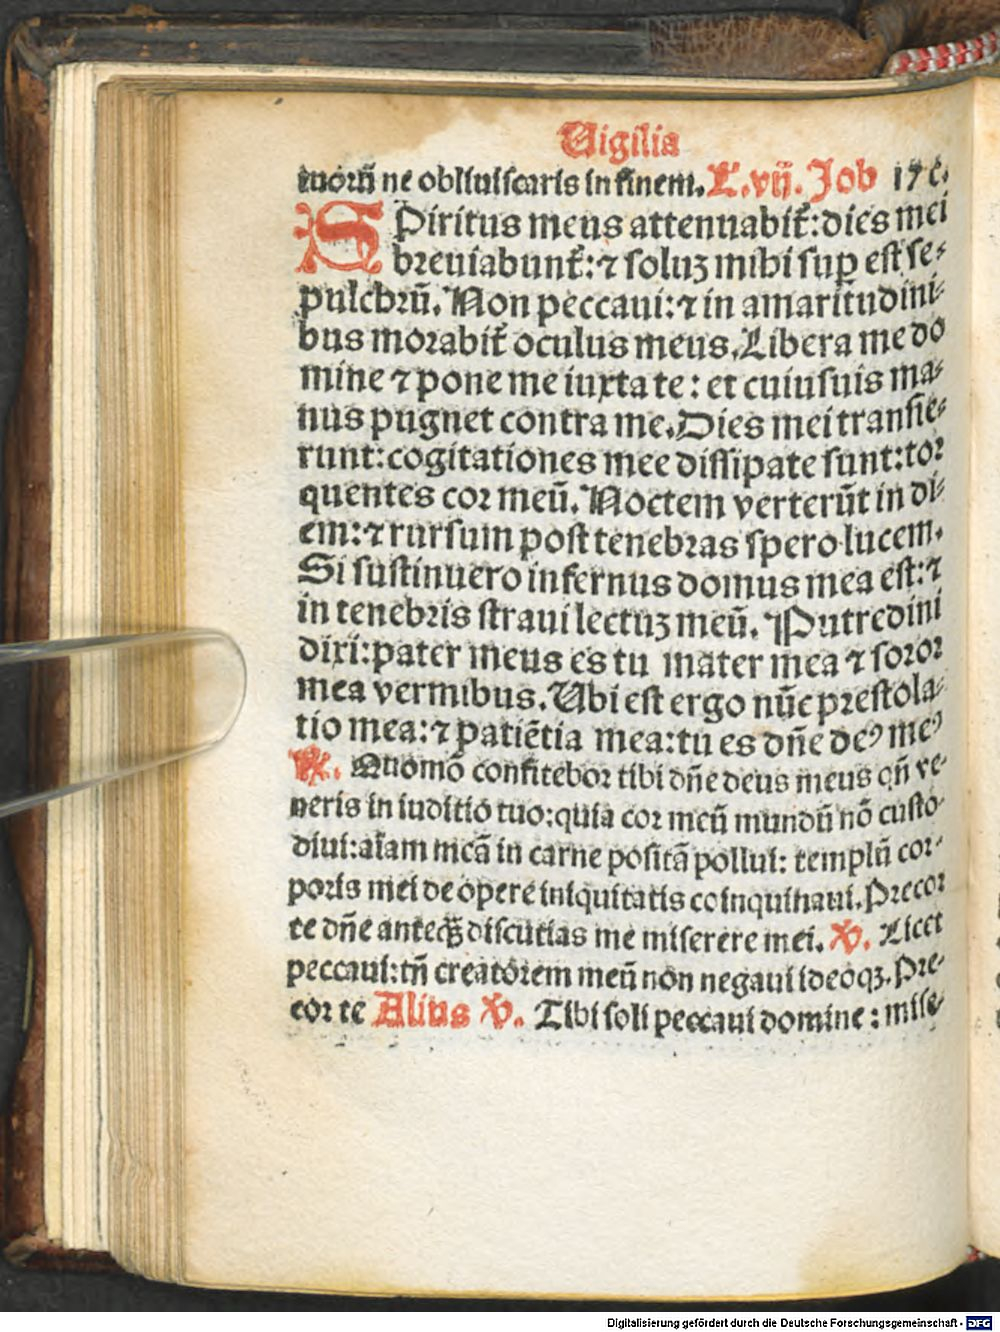 Vigilia
tuorũ ne obliuiscaris in finem. L. vij. Job 17 c.
SPiritus meus attenuabit̃: dies mei
breuiabunt̃: ⁊ soluꝫ mihi sup̱ est se⸗
pulchrũ. Non peccaui: ⁊ in amaritudini⸗
bus morabit̃ oculus meus. Libera me do
mine ⁊ pone me iuxta te: et cuiusuis ma⸗
nus pugnet contra me. Dies mei transie⸗
runt: cogitationes mee dissipate sunt: tor
quentes cor meũ. Noctem verterũt in di⸗
em: ⁊ rursum post tenebras spero lucem.
Si sustinuero infernus domus mea est: ⁊
in tenebris straui lectuꝫ meũ. Putredini
dixi: pater meus es tu mater mea ⁊ soror
mea vermibus. Ubi est ergo nũc prestola⸗
tio mea: ⁊ patiẽtia mea: tu es dñe deꝰ meꝰ
℟. Quomõ confitebor tibi dñe deus meus qñ ve⸗
neris in iuditio tuo: quia cor meũ mundũ nõ custo⸗
diui: aĩam meã in carne positã pollui: templũ cor⸗
poris mei de opere iniquitatis coinquinaui. Precor
te dñe anteqꝫ discutias me miserere mei. ℣. Licet
peccaui: tñ creatorem meũ non negaui ideoqꝫ. Pre⸗
cor te Alius ℣. Tibi soli peccaui domine: mise⸗
Digitalisierung gefördert durch die Deutsche Forschungsgemeinschaft - DFG